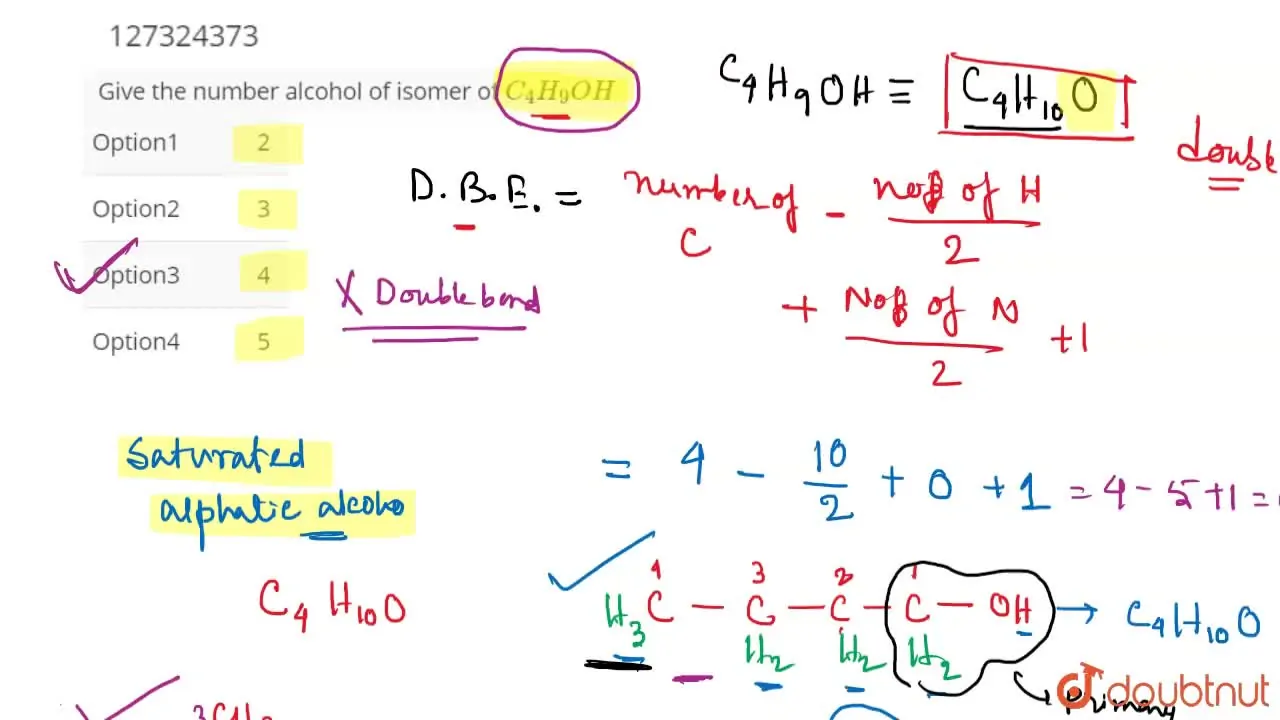 127324373
Give the number alcohol of isomer of C₄H₉OH
Option1 2
Option2 3
Option3 4
Option4 5
C₄H₉OH ≡ C₄H₁₀O
double
D.B.E. = number of C - No of H / 2
+ No of N / 2 + 1
X Double bond
Saturated
alphatic alcoho
C₄H₁₀O
= 4 - 10/2 + 0 + 1 = 4 - 5 + 1 =
4 3 2 1
H₃C - C - C - C - OH → C₄H₁₀O
H₂ H₂ H₂
Primary
doubtnut